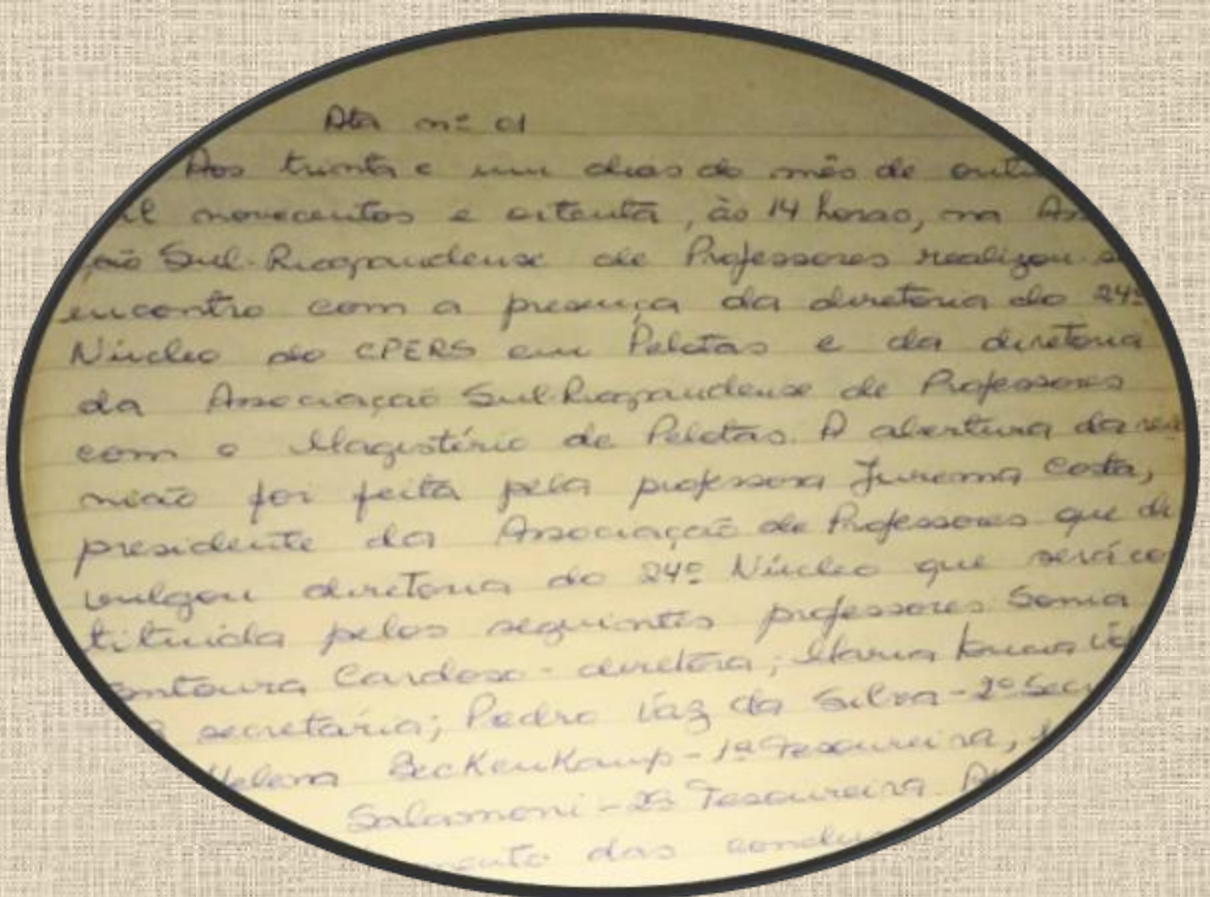 Ata nº 01
Aos trinta e um dias do mês de outu
il novecentos e oitenta, às 14 horas, na As
ção Sul-Riograndense de Professores realizou-s
encontro com a presença da diretoria do 24º
Núcleo do CPERS em Pelotas e da diretoria
da Associação Sul-Riograndense de Professores
com o Magistério de Pelotas. A abertura da reu
nião foi feita pela professora Jurema Costa,
presidente da Associação de Professores que di
vulgou diretoria do 24º Núcleo que será co
tituida pelos seguintes professores: Sonia
ontoura Cardoso - diretora; Maria
secretária; Pedro Vaz da Silva - 2º Sec
Helena Beckenkamp - 1ª Tesoureira,
Salamoni - 2ª Tesoureira.
mento das